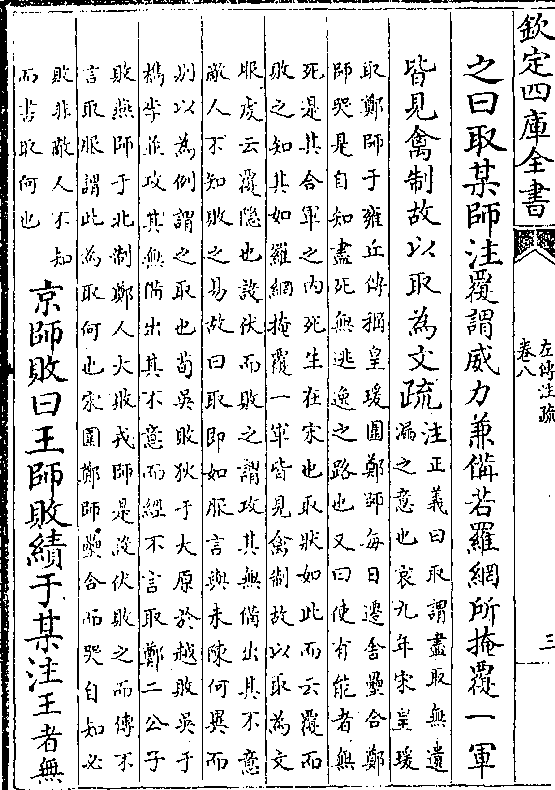 欽定四庫全書
左傳注疏
卷八
三
之曰取某師注覆謂威力兼備若羅網所掩覆一軍
皆見禽制故以取為文疏
注正義曰取謂盡取無遺
漏之意也哀九年宋皇瑗
取鄭師于雍丘傳稱皇瑗圍鄭師每日遷舍壘合鄭
師哭是自知盡死無逃逸之路也又曰使有能者無
死是其合軍之內死生在宋也取狀如此而云覆而
敗之知其如羅網掩覆一軍皆見禽制故以取為文
服虔云覆隱也設伏而敗之謂攻其無備出其不意
敵人不知敗之易故曰取即如服言與未陳何異而
別以為例謂之取也荀吳敗狄于大原於越敗吳于
檇李並攻其無備出其不意而經不言取鄭二公子
敗燕師于北制鄭人大敗戎師是設伏敗之而傳不
言取服謂此為取何也宋圍鄭師壘合而哭自知必
敗非敵人不知
而書取何也
京師敗曰王師敗績于某注王者無